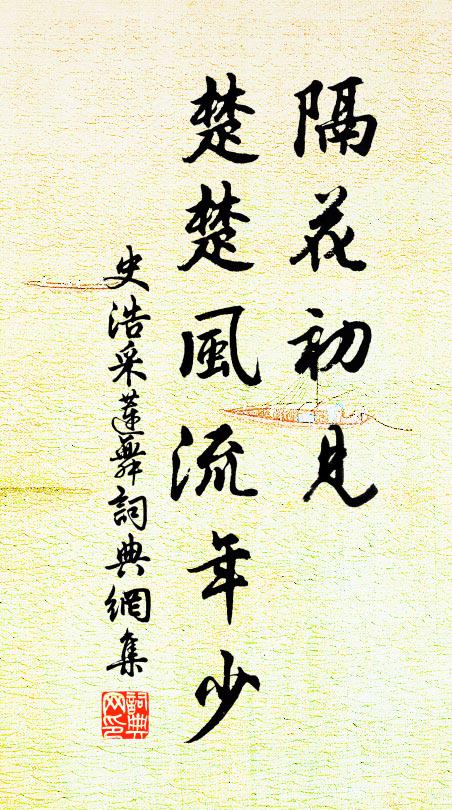 隔花初見
楚楚風流年少
史浩采蓮舞詞典網集
詞典網印